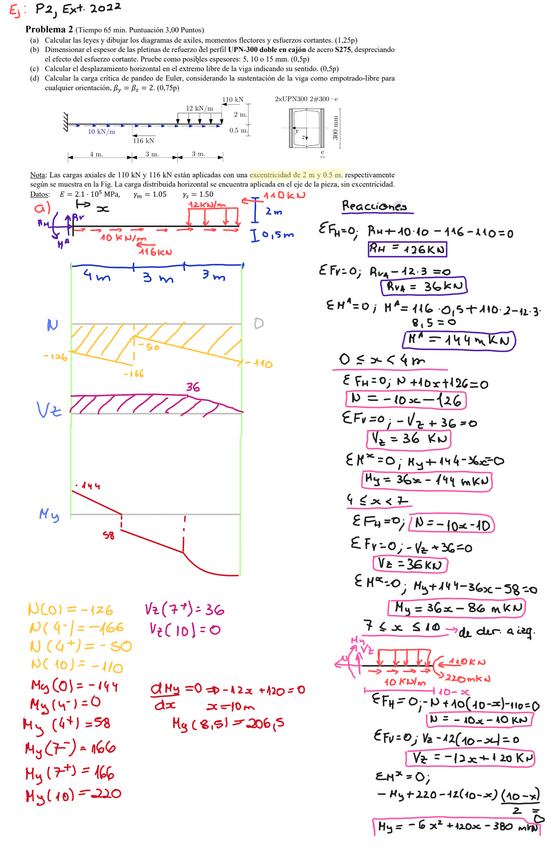 Ej: P2, Ext. 2022
Problema 2 (Tiempo 65 min. Puntuación 3,00 Puntos)
(a) Calcular las leyes y dibujar los diagramas de axiles, momentos flectores y esfuerzos cortantes. (1,25p)
(b) Dimensionar el espesor de las pletinas de refuerzo del perfil UPN-300 doble en cajón de acero S275, despreciando
el efecto del esfuerzo cortante. Pruebe como posibles espesores: 5, 10 o 15 mm. (0,5p)
(c) Calcular el desplazamiento horizontal en el extremo libre de la viga indicando su sentido. (0,5p)
(d) Calcular la carga crítica de pandeo de Euler, considerando la sustentación de la viga como empotrado-libre para
cualquier orientación, βy = βz = 2. (0,75p)
110 kN
12 kN/m
2 m.
0.5 m.
10 kN/m
116 kN
4 m.
3 m.
3 m.
2xUPN300 2#300·e
y
z
300 mm
e
Nota: Las cargas axiales de 110 kN y 116 kN están aplicadas con una excentricidad de 2 m y 0.5 m. respectivamente
según se muestra en la Fig. La carga distribuida horizontal se encuentra aplicada en el eje de la pieza, sin excentricidad.
Datos: E = 2.1 · 10⁵ MPa, γm = 1.05 γs = 1.50
a)
x
RH
MA
12KN/m
110KN
2m
0,5m
10 KN/m
116KN
4m
3m
3m
N
0
-126
-166
-50
-110
Vz
36
My
-144
58
N(0)=-126
N(4-)=-166
N(4+)=-50
N(10)=-110
My(0)=-144
My(4-)=0
My(4+)=58
My(7-)=166
My(7+)=166
My(10)=220
Vz(7+)=36
Vz(10)=0
dMy/dx =0 ⇒ -12x+120=0
x=10m
My(8,5)=206,5
Reacciones
ΣFH=0; RH+10·10-116-110=0
RH=126KN
ΣFV=0; RVA-12·3=0
RVA=36KN
ΣMA=0; MA=116·0,5+110·2-12·3·
8,5=0
MA=144mKN
0≤x<4m
ΣFH=0; N+10x+126=0
N=-10x-126
ΣFV=0; -Vz+36=0
Vz=36 KN
ΣMx=0; My+144-36x=0
My=36x-144 mKN
4≤x<7
ΣFH=0; N=-10x-10
ΣFV=0; -Vz+36=0
Vz=36KN
ΣMx=0; My+144-36x-58=0
My=36x-86 mKN
7≤x≤10 → de der. a izq.
My
Vz
N
110KN
220mKN
10 KN/m
10-x
ΣFH=0; -N+10(10-x)-110=0
N=-10x-10KN
ΣFV=0; Vz-12(10-x)=0
Vz=-12x+120KN
ΣMx=0;
-My+220-12(10-x)(10-x)/2=0
My=-6x²+120x-380 mKN